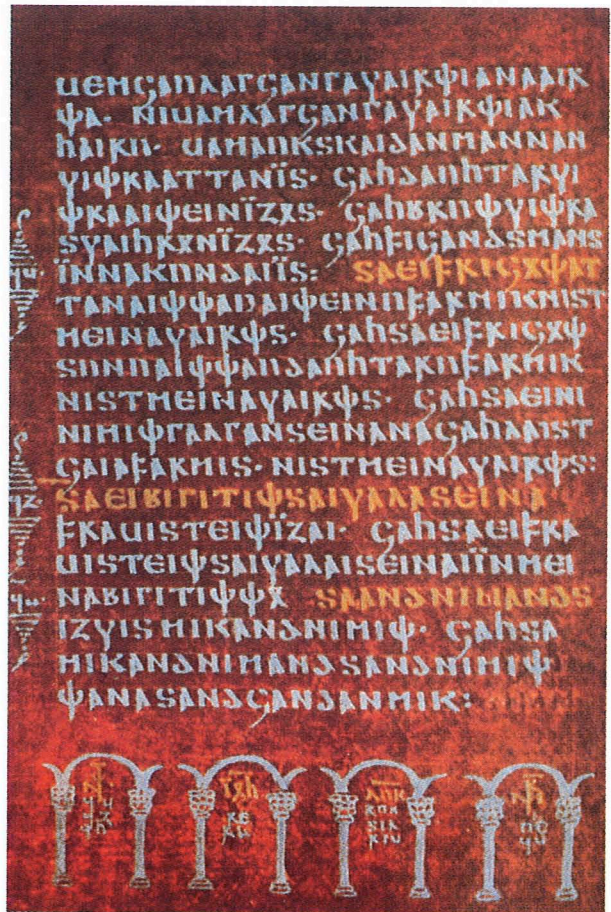 𐌵𐌴𐌼𐌾𐌰𐌿𐌻𐌰𐌲𐌾𐌰𐌽𐌲𐌰𐍅𐌰𐌹𐍂𐌸𐌹𐌰𐌽𐌰𐌰𐌹𐍂
𐌸𐌰· 𐌽𐌹𐌵𐌰𐌼𐌻𐌰𐌲𐌾𐌰𐌽𐌲𐌰𐍅𐌰𐌹𐍂𐌸𐌹𐌰𐌺
𐌷𐌰𐌹𐍂𐌿· 𐌵𐌰𐌼𐌰𐌿𐌺𐍃𐌺𐌰𐌹𐌳𐌰𐌽𐌼𐌰𐌽𐌽𐌰𐌽
𐍅𐌹𐌸𐍂𐌰𐌰𐍄𐍄𐌰𐌽𐌹̈𐍃· 𐌾𐌰𐌷𐌳𐌰𐌿𐌷𐍄𐌰𐍂𐍅𐌹
𐌸𐍂𐌰𐌰𐌹𐌸𐌴𐌹𐌽𐌹̈𐌶𐍉𐍃· 𐌾𐌰𐌷𐌱𐍂𐌿𐌸𐍅𐌹𐌸𐍂𐌰
𐍃𐍅𐌰𐌹𐌷𐍂𐍉𐌽𐌹̈𐌶𐍉𐍃· 𐌾𐌰𐌷𐍆𐌹𐌾𐌰𐌽𐌳𐍃𐌼𐌰𐌽𐍃
𐌹̈𐌽𐌽𐌰𐌺𐌿𐌽𐌳𐌰𐌹𐌹̈𐍃: 𐍃𐌰𐌴𐌹𐍆𐍂𐌹𐌾𐍉𐌸𐌰𐍄
𐍄𐌰𐌽𐌰𐌹𐌸𐌸𐌰𐌿𐌰𐌹𐌸𐌴𐌹𐌽𐌿𐍆𐌰𐍂𐌼𐌹𐌺𐌽𐌹𐍃𐍄
𐌼𐌴𐌹𐌽𐌰𐍅𐌰𐌹𐍂𐌸𐍃· 𐌾𐌰𐌷𐍃𐌰𐌴𐌹𐍆𐍂𐌹𐌾𐍉𐌸
𐍃𐌿𐌽𐌿𐌰𐌹𐌸𐌸𐌰𐌿𐌳𐌰𐌿𐌷𐍄𐌰𐍂𐌿𐍆𐌰𐍂𐌼𐌹𐌺
𐌽𐌹𐍃𐍄𐌼𐌴𐌹𐌽𐌰𐍅𐌰𐌹𐍂𐌸𐍃· 𐌾𐌰𐌷𐍃𐌰𐌴𐌹𐌽𐌹
𐌽𐌹𐌼𐌹𐌸𐌲𐌰𐌻𐌲𐌰𐌽𐍃𐌴𐌹𐌽𐌰𐌽𐌰𐌾𐌰𐌷𐌻𐌰𐌹𐍃𐍄
𐌾𐌰𐌹𐌰𐍆𐌰𐍂𐌼𐌹𐍃· 𐌽𐌹𐍃𐍄𐌼𐌴𐌹𐌽𐌰𐍅𐌰𐌹𐍂𐌸𐍃:
𐍃𐌰𐌴𐌹𐌱𐌹𐌲𐌹𐍄𐌹𐌸𐍃𐌰𐌹𐍅𐌰𐌻𐌰𐍃𐌴𐌹𐌽𐌰
𐍆𐍂𐌰𐌵𐌹𐍃𐍄𐌴𐌹𐌸𐌹̈𐌶𐌰𐌹· 𐌾𐌰𐌷𐍃𐌰𐌴𐌹𐍆𐍂𐌰
𐌵𐌹𐍃𐍄𐌴𐌹𐌸𐍃𐌰𐌹𐍅𐌰𐌻𐌰𐌹𐍃𐌴𐌹𐌽𐌰𐌹𐌹̈𐌽𐌼𐌴𐌹
𐌽𐌰𐌱𐌹𐌲𐌹𐍄𐌹𐌸𐌸𐍉 𐍃𐌰𐌰𐌽𐌳𐌽𐌹𐌼𐌰𐌽𐌳𐍃
𐌹𐌶𐍅𐌹𐍃𐌼𐌹𐌺𐌰𐌽𐌳𐌽𐌹𐌼𐌹𐌸· 𐌾𐌰𐌷𐍃𐌰
𐌼𐌹𐌺𐌰𐌽𐌳𐌽𐌹𐌼𐌰𐌽𐌳𐍃𐌰𐌽𐌳𐌽𐌹𐌼𐌹𐌸
𐌸𐌰𐌽𐌰𐍃𐌰𐌽𐌳𐌾𐌰𐌽𐌳𐌰𐌽𐌼𐌹𐌺:
𐌹𐍉𐌷 𐌻𐌿𐌺